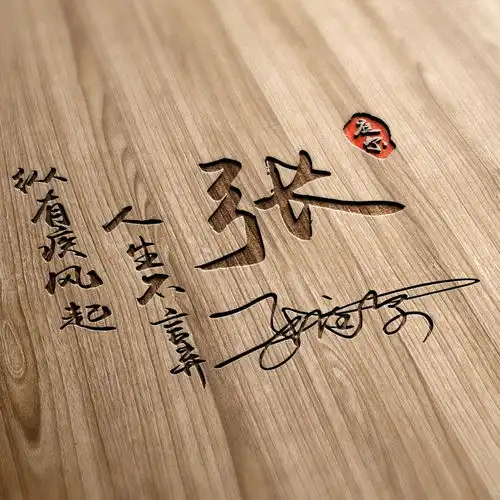 纵有疾风起
人生不言弃
张